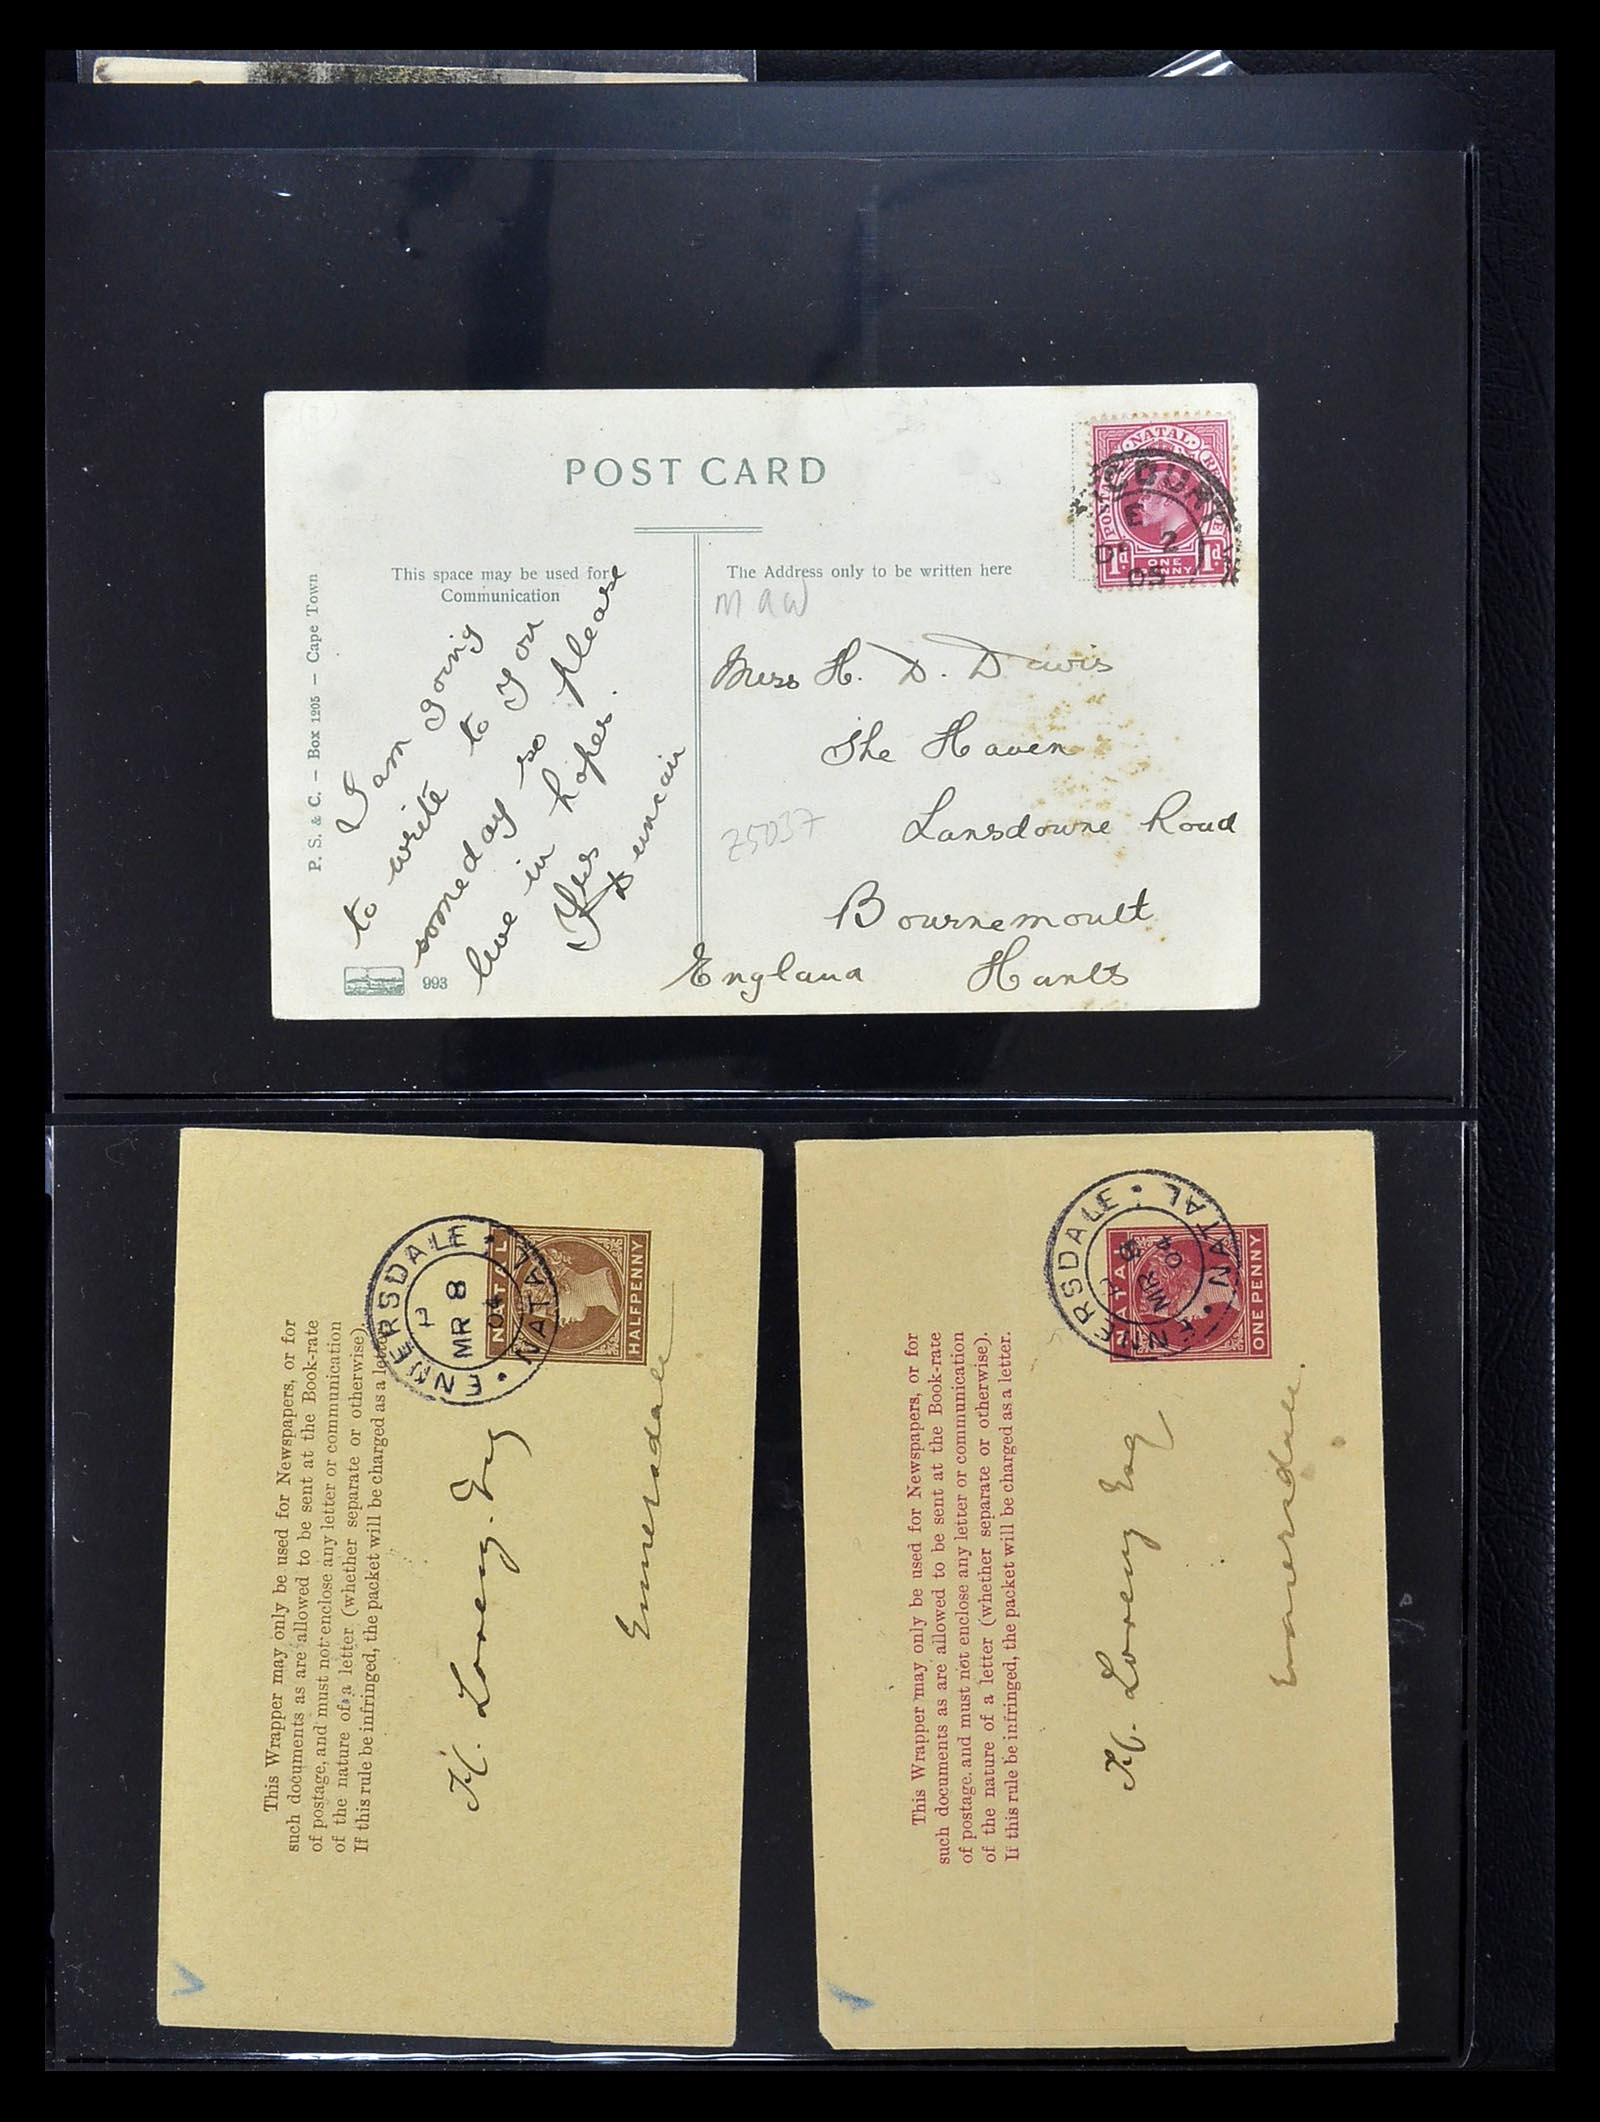 POST CARD
This space may be used for
Communication
The Address only to be written here
P. S. & C. – Box 1205 – Cape Town
I am going
to write to you
someday so please
live in hopes.
Yrs
Duncan
993
NATAL
POSTAGE
1d 1d
ONE PENNY
2
05
MAW
Miss H. D. Davis
The Haven
Lansdowne Road
Bournemoutt
England Hants
Z5037
This Wrapper may only be used for Newspapers, or for
such documents as are allowed to be sent at the Book-rate
of postage, and must not enclose any letter or communication
of the nature of a letter (whether separate or otherwise).
If this rule be infringed, the packet will be charged as a letter.
ENNERSDALE · NATAL ·
MR 8
04
NATAL
HALFPENNY
H. Loveny. Esq
Ennersdale
This Wrapper may only be used for Newspapers, or for
such documents as are allowed to be sent at the Book-rate
of postage, and must not enclose any letter or communication
of the nature of a letter (whether separate or otherwise).
If this rule be infringed, the packet will be charged as a letter.
ENNERSDALE · NATAL ·
MR 8
04
NATAL
ONE PENNY
H. Loveny Esq
Ennersdale.